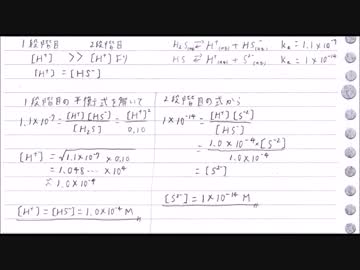 1段階目 2段階目
[H⁺] >> [H⁺] より
[H⁺] = [HS⁻]
H₂S ⇄ H⁺(aq) + HS⁻(aq) Ka = 1.1×10⁻⁷
HS ⇄ H⁺(aq) + S²⁻(aq) Ka = 1×10⁻¹⁴
1段階目の平衡式を解いて
1.1×10⁻⁷ = [H⁺][HS⁻]/[H₂S] = [H⁺]²/0.10
[H⁺] = √1.1×10⁻⁷×0.10
= 1.048… ×10⁴
≒ 1.0×10⁻⁴
[H⁺] = [HS⁻] = 1.0×10⁻⁴ M
2段階目の式から
1×10⁻¹⁴ = [H⁺][S²⁻]/[HS⁻]
= 1.0×10⁻⁴・[S²⁻]/1.0×10⁻⁴
= [S²⁻]
[S²⁻] = 1×10⁻¹⁴ M